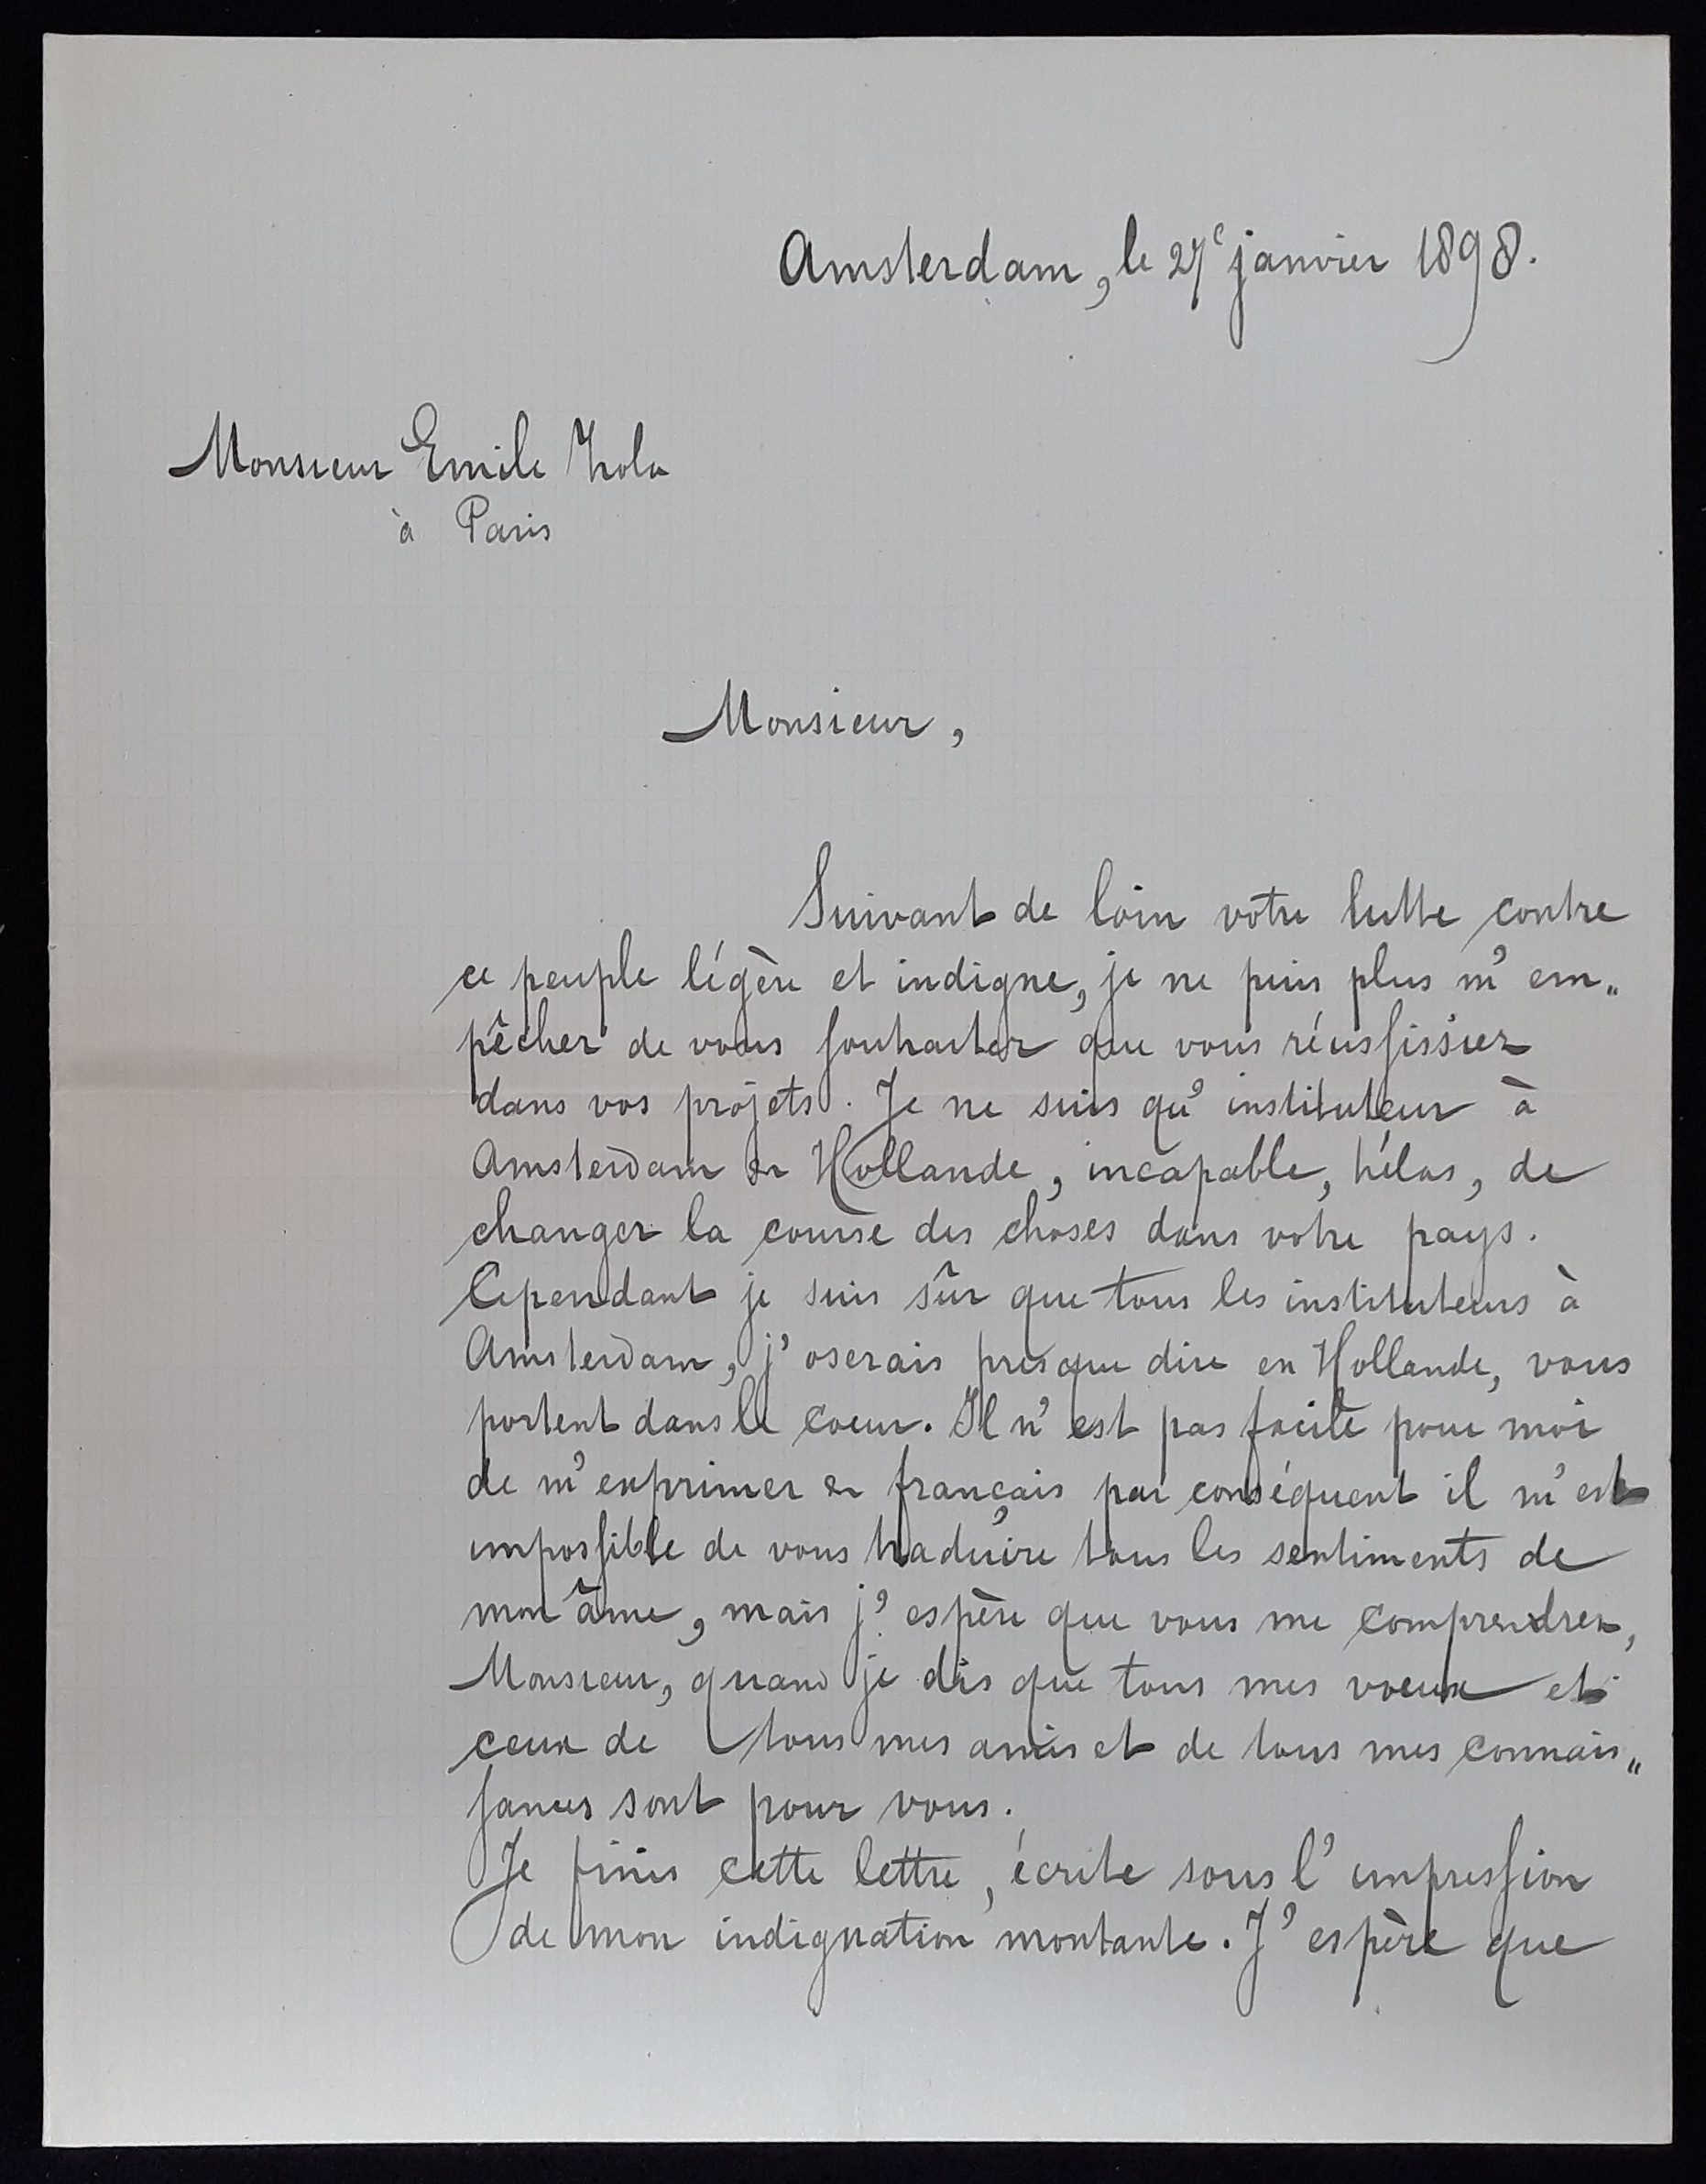 Amsterdam, le 27e janvier 1898.
Monsieur Emile Zola
à Paris
Monsieur,
Suivant de loin votre lutte contre
ce peuple légère et indigne, je ne puis plus m'em„
pêcher de vous souhaiter que vous réussissiez
dans vos projets. Je ne suis qu'instituteur à
Amsterdam en Hollande, incapable, hélas, de
changer la course des choses dans votre pays.
Cependant je suis sûr que tous les instituteurs à
Amsterdam, j'oserais presque dire en Hollande, vous
portent dans le coeur. Il n'est pas facile pour moi
de m'exprimer en français par conséquent il m'est
impossible de vous traduire tous les sentiments de
mon âme, mais j'espère que vous me comprendrez,
Monsieur, quand je dis que tous mes voeux et
ceux de tous mes amis et de tous mes connais„
sances sont pour vous.
Je finis cette lettre, écrite sous l'impression
de mon indignation montante. J'espère que